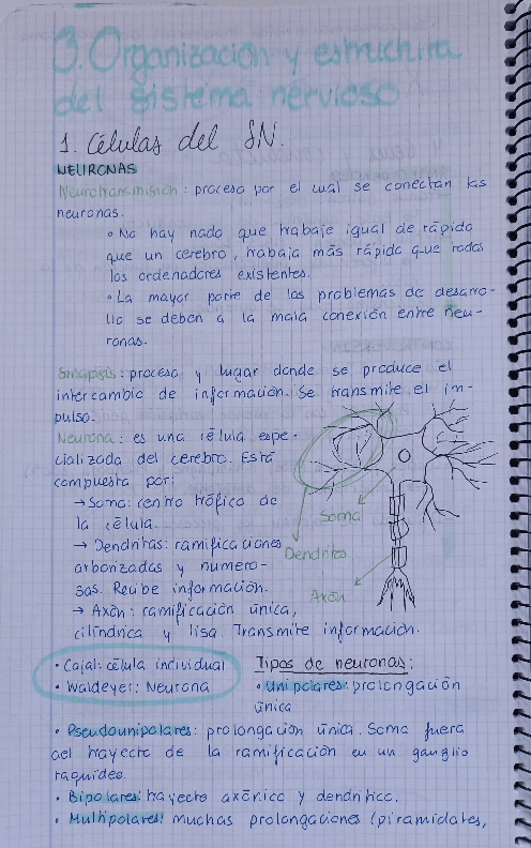 3. Organización y estructura
del sistema nervioso
1. Células del SN.
NEURONAS
Neurotransmisión: proceso por el cual se conectan las
neuronas.
• No hay nada que trabaje igual de rápido
que un cerebro, trabaja más rápido que todos
los ordenadores existentes.
• La mayor parte de los problemas de desarro-
llo se deben a la mala conexión entre neu-
ronas.
Sinapsis: proceso y lugar donde se produce el
intercambio de información. Se transmite el im-
pulso.
Neurona: es una célula espe-
cializada del cerebro. Está
compuesta por:
→ Soma: centro trófico de
la célula.
→ Dendritas: ramificaciones
arborizadas y numero-
sas. Recibe información.
→ Axón: ramificación única,
cilíndrica y lisa. Transmite información.
Soma
Dendritas
Axón
• Cajal: célula individual
• Waldeyer: Neurona
Tipos de neuronas:
• Unipolares: prolongación
única
• Pseudounipolares: prolongación única. Soma fuera
del trayecto de la ramificación en un ganglio
raquídeo.
• Bipolares: trayecto axónico y dendrítico.
• Multipolares: muchas prolongaciones (piramidales,